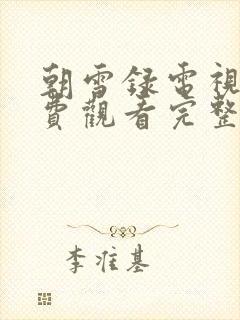 朝雪録電視
費觀看完整
李准基